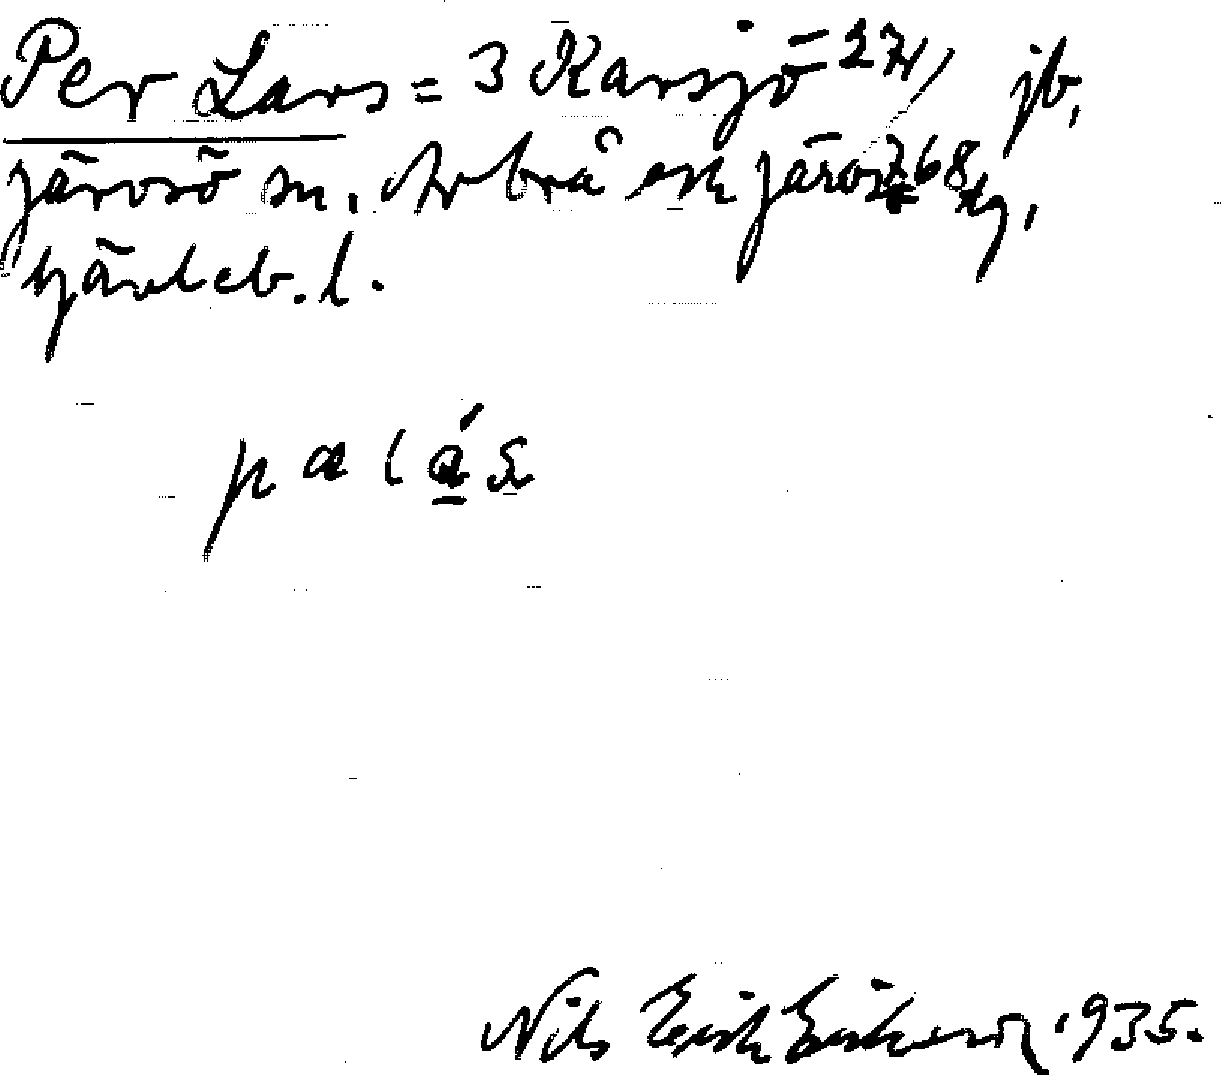 Per Lars = 3 Karsjö 27/1 jb,
Järvsö sn. Arbrå och Järvsö 768 tg,
Gävleb. l.
palás
Nils Erik Eriksson 1935.